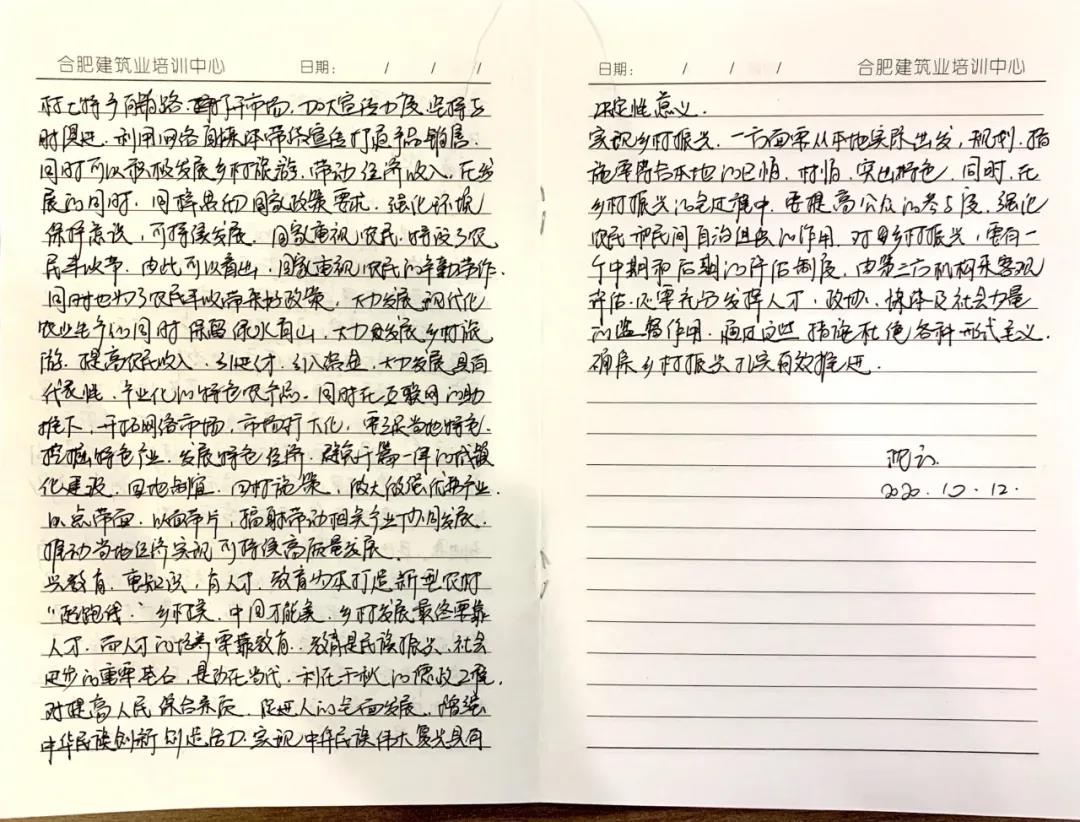 合肥建筑业培训中心 日期: / / /
村土特产销路,打开市场,加大宣传力度,坚持与
时俱进,利用网络自媒体带货宣传打造产品销售.
同时可以积极发展乡村旅游,带动经济收入,在发
展的同时,同样悬切国家政策要求,强化环境
保护意识,可持续发展.国家重视农民,特设了农
民丰收节,由此可以看出,国家重视农民的辛勤劳作.
同时也为了农民丰收带来好政策,大力发展现代化
农业生产的同时保留绿水青山,大力发展乡村旅
游,提高农民收入,引进人才,引入企业,大力发展具有
代表性、产业化的特色农产品.同时在互联网的助
推下,开拓网络市场,市场打大化,要强当地特色.
挖掘特色产业,发展特色经济,避免千篇一律的
化建设,因地制宜,因村施策,做大做强优势产业,
以点带面,以面带片,辐射带动相关产业协同发展,
推动当地经济实现可持续高质量发展.
兴教育,重知识,有人才,教育为本打造新型农村
“起跑线”.乡村美,中国才能美,乡村发展最终要靠
人才,而人才的培养要靠教育.教育是民族振兴、社会
进步的重要基石,是功在当代、利在千秋的德政工程,
对提高人民综合素质,促进人的全面发展,增强
中华民族创新创造活力,实现中华民族伟大复兴具有
日期: / / / 合肥建筑业培训中心
决定性意义.
实现乡村振兴,一方面要从本地实际出发,规划、措
施要符合本地的民情、村情,突出特色.同时,在
乡村振兴的全过程中,要提高公众的参与度,强化
农民和民间自治组织的作用.对于乡村振兴,要有一
个中期和后期的评估制度,由第三方机构来客观
评估.还要充分发挥人才、政协、媒体及社会力量
的监督作用,通过这些措施杜绝各种形式主义,
确保乡村振兴扎实有效推进.
2020.10.12.